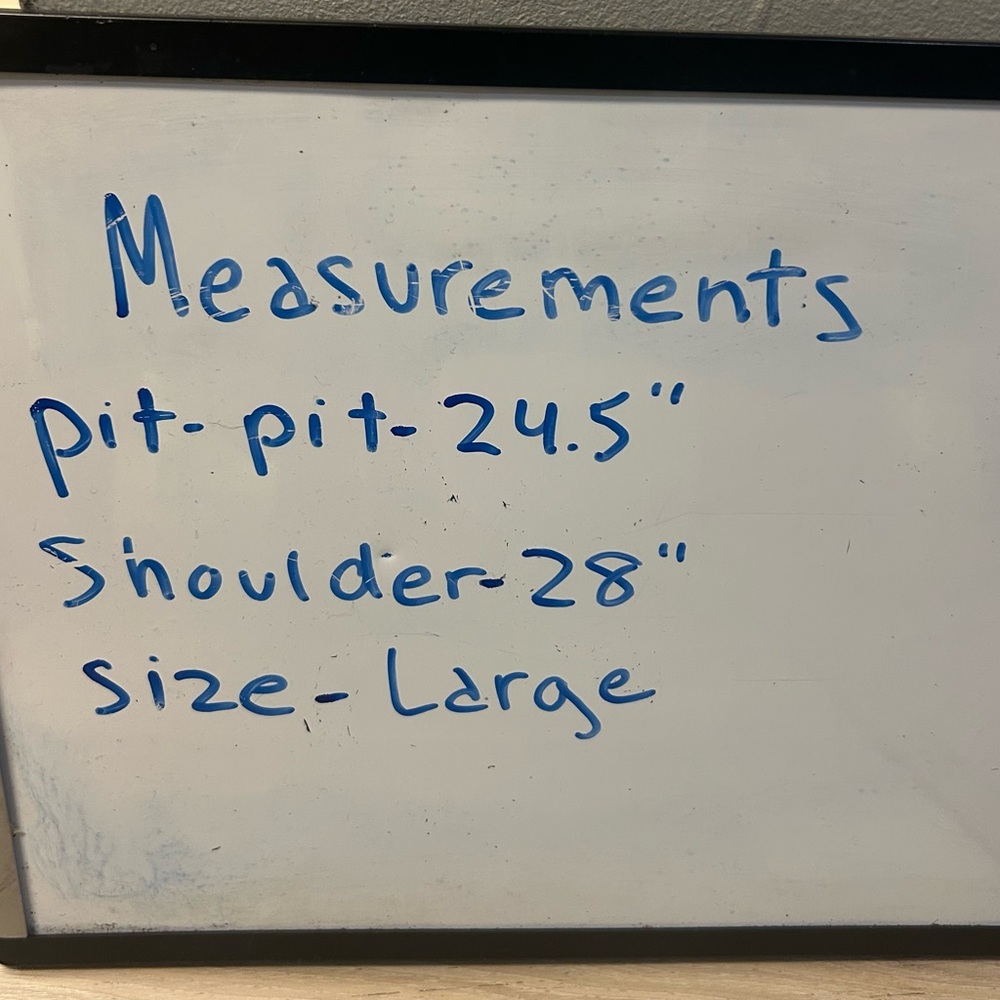 Measurements
pit-pit-24.5"
Shoulder-28"
Size-Large